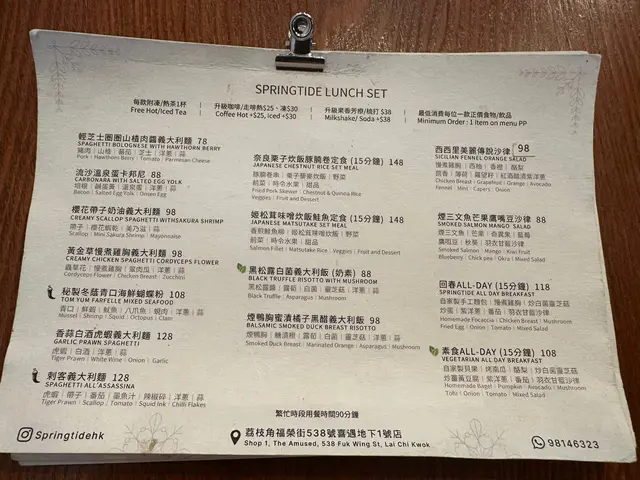 SPRINGTIDE LUNCH SET
每款附凍/熱茶1杯
Free Hot/Iced Tea
升級咖啡/走啡熱$25、凍$30
Coffee Hot +$25, Iced +$30
升級果香芳療/梳打 $38
Milkshake/ Soda +$38
最低消費每位一款正價食物/飲品
Minimum Order : 1 Item on menu PP
輕芝士圈圈山楂肉醬義大利麵 78
SPAGHETTI BOLOGNESE WITH HAWTHORN BERRY
豬肉 | 山楂 | 番茄 | 芝士 | 洋蔥 | 蒜
Pork · Hawthorn Berry | Tomato | Parmesan Cheese
流沙溫泉蛋卡邦尼 88
CARBONARA WITH SALTED EGG YOLK
培根 | 鹹蛋黃 | 溫泉蛋 | 洋蔥 | 蒜
Bacon | Salted Egg Yolk | Onsen Egg
櫻花帶子奶油義大利麵 98
CREAMY SCALLOP SPAGHETTI WITHSAKURA SHRIMP
帶子 | 櫻花蝦乾 | 美乃滋 | 蒜
Scallop | Mini Sakura Shrimp | Mayonnaise
黃金草慢煮雞胸義大利麵 98
CREAMY CHICKEN SPAGHETTI CORDYCEPS FLOWER
蟲草花 | 慢煮雞胸 | 翠肉瓜 | 洋蔥 | 蒜
Cordyceps Flower | Chicken Breast | Zucchini
秘製冬蔭青口海鮮蝴蝶粉 108
TOM YUM FARFELLE MIXED SEAFOOD
青口 | 鮮蝦 | 魷魚 | 八爪魚 | 蜆肉 | 洋蔥 | 蒜
Mussel | Shrimp | Squid | Octopus | Clam
香蒜白酒虎蝦義大利麵 128
GARLIC PRAWN SPAGHETTI
虎蝦 | 白酒 | 洋蔥 | 蒜
Tiger Prawn | White Wine | Onion | Garlic
刺客義大利麵 128
SPAGHETTI ALL'ASSASSINA
虎蝦 | 帶子 | 番茄 | 墨魚汁 | 辣椒碎 | 洋蔥 | 蒜
Tiger Prawn | Scallop | Tomato | Squid Ink | Chilli Flakes
奈良栗子炊飯豚腩卷定食 (15分鐘) 148
JAPANESE CHESTNUT RICE SET MEAL
豚腩卷串 | 栗子藜麥炊飯 | 野菜
前菜 | 時令水果 | 甜品
Fried Pork Skewer | Chestnut & Quinoa Rice
Veggies | Fruit and Dessert
姬松茸味噌炊飯鮭魚定食 (15分鐘) 148
JAPANESE MATSUTAKE SET MEAL
香煎鮭魚柳 | 姬松茸味噌炊飯 | 野菜
前菜 | 時令水果 | 甜品
Salmon Fillet | Matsutake Rice | Veggies | Fruit and Dessert
黑松露白菌義大利飯 (奶素) 88
BLACK TRUFFLE RISOTTO WITH MUSHROOM
黑松露醬 | 露筍 | 白菌 | 靈芝菇 | 洋蔥 | 蒜
Black Truffle | Asparagus | Mushroom
煙鴨胸蜜漬橘子黑醋義大利飯 98
BALSAMIC SMOKED DUCK BREAST RISOTTO
煙鴨胸 | 糖漬橘 | 露筍 | 白菌 | 靈芝菇 | 洋蔥 | 蒜
Smoked Duck Breast | Marinated Orange | Asparagus | Mushroom
西西里美麗傳說沙律 98
SICILIAN FENNEL ORANGE SALAD
慢煮雞胸 | 西柚 | 香橙 | 酪梨
茴香 | 薄荷 | 蘿望籽 | 紅酒醋漬紫洋蔥
Chicken Breast | Grapefruit | Orange | Avocado
Fennel | Mint | Capers | Red Onion
煙三文魚芒果鷹嘴豆沙律 88
SMOKED SALMON MANGO SALAD
煙三文魚 | 芒果 | 奇異果 | 藍莓
鷹咀豆 | 秋葵 | 羽衣甘藍沙律
Smoked Salmon | Mango | Kiwi Fruit
Blueberry | Chick pea | Okra | Mixed Salad
回春ALL-DAY (15分鐘) 118
SPRINGTIDE ALL DAY BREAKFAST
自家製手工麵包 | 慢煮雞胸 | 炒白菌靈芝菇
炒蛋 | 紫洋蔥 | 番茄 | 羽衣甘藍沙律
Homemade Focaccia | Chicken Breast | Mushroom
Fried Egg | Onion | Tomato | Mixed Salad
素食ALL-DAY (15分鐘) 108
VEGETARIAN ALL DAY BREAKFAST
自家製貝果 | 烤南瓜 | 酪梨 | 炒白菌靈芝菇
炒薑黃豆腐 | 紫洋蔥 | 番茄 | 羽衣甘藍沙律
Homemade Bagel | Pumpkin | Avocado | Mushroom
Tofu | Onion | Tomato | Mixed Salad
繁忙時段用餐時間90分鐘
Springtidehk
荔枝角福榮街538號喜遇地下1號店
Shop 1, The Amused, 538 Fuk Wing St, Lai Chi Kwok
98146323